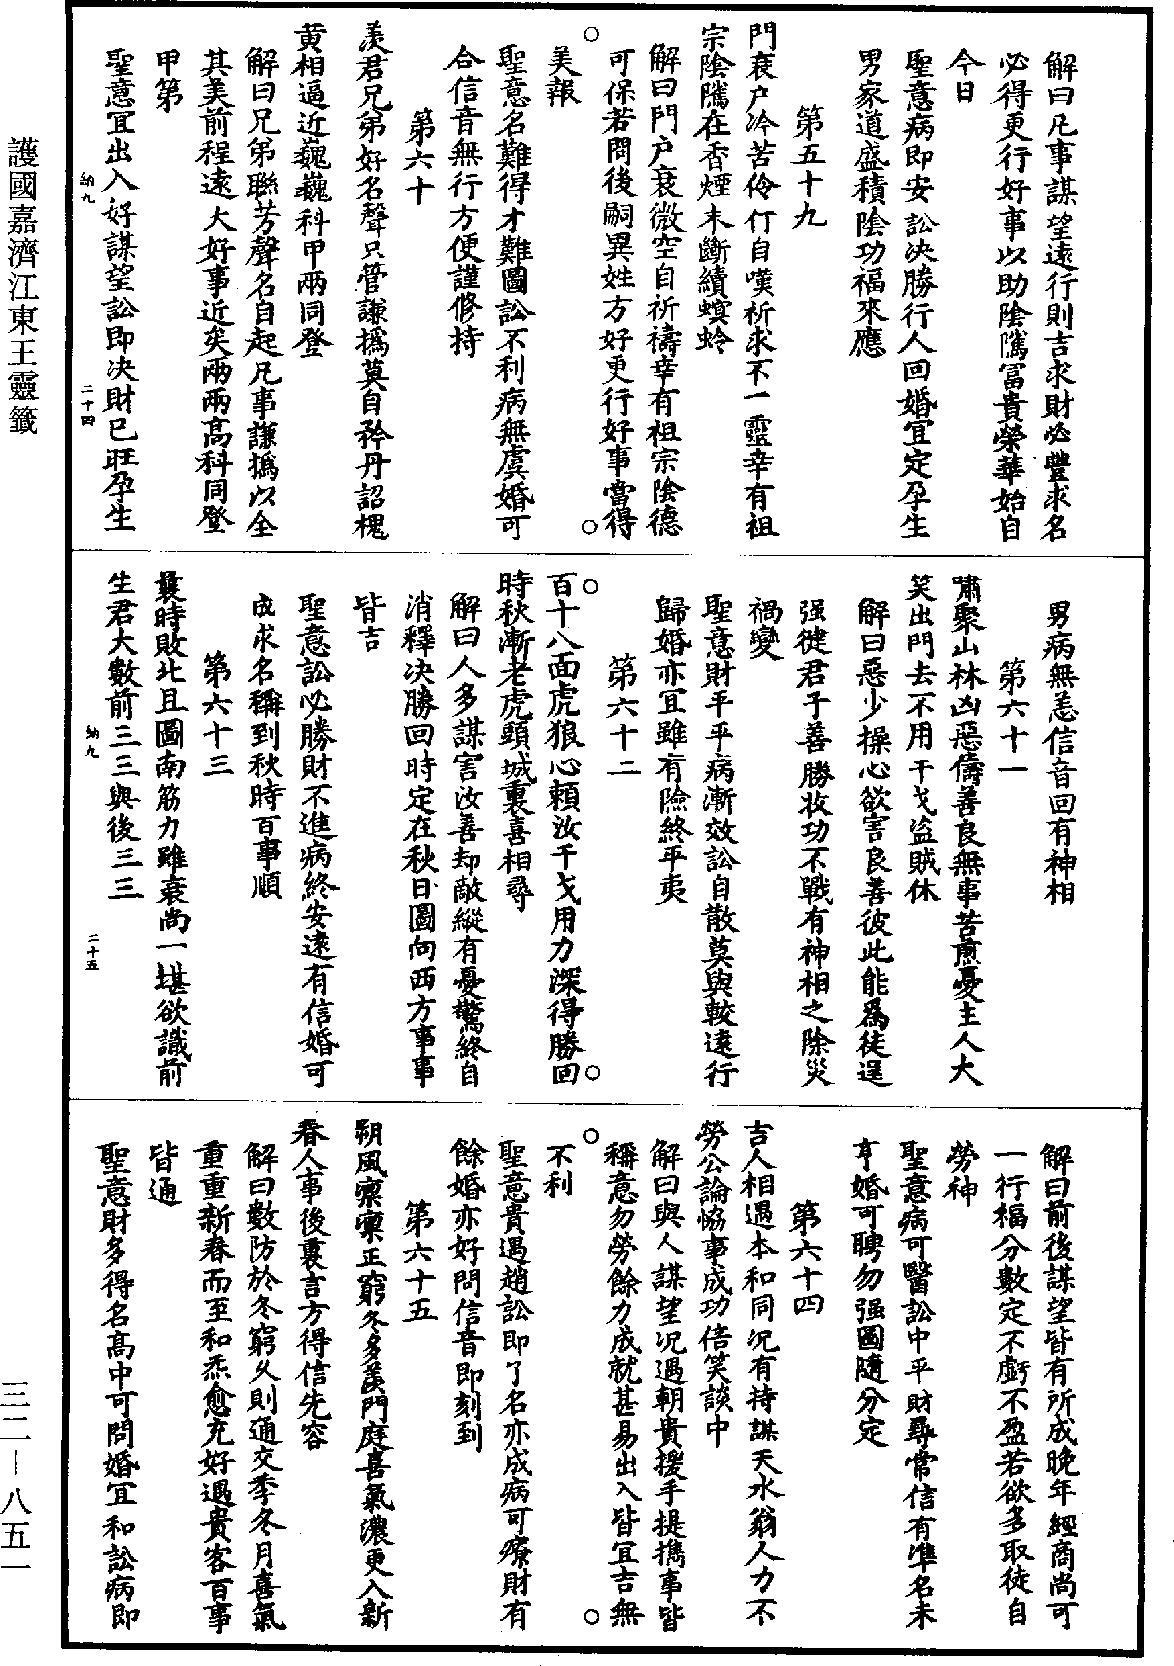 解曰凡事謀望遠行則吉求財必豐求名
必得更行好事以助陰隲冨貴榮華始自
今日
聖意病即安訟决勝行人回婚宜定孕生
男家道盛積陰功福來應
第五十九
門衰户冷苦伶仃自嘆祈求不一靈幸有祖
宗陰隲在香煙未斷續螟蛉
解曰門户衰微空自祈禱幸有祖宗陰德
可保若問後嗣異姓方好更行好事當得
美報
聖意名難得才難圖訟不利病無虞婚可
合信音無行方便謹修持
第六十
羨君兄弟好名聲只管謙撝莫自矜丹詔槐
黄相逼近巍巍科甲兩同登
解曰兄弟聯芳聲名自起凡事謙撝以全
其美前程遠大好事近矣兩兩高科同登
甲第
聖意宜出入好謀望訟即决財已旺孕生
納九
二十四
男病無恙信音回有神相
第六十一
嘯聚山林凶惡儔善良無事苦煎憂主人大
笑出門去不用干戈盜賊休
解曰惡少操心欲害良善彼此能爲徒逞
强徤君子善勝妆功不戰有神相之除災
禍變
聖意財平平病漸效訟自散莫與較遠行
歸婚亦宜雖有險終平夷
第六十二
百十八面虎狼心頼汝干戈用力深得勝回
時秋漸老虎頭城裏喜相尋
解曰人多謀害汝善却敵縱有憂驚終自
消釋决勝回時定在秋日圖向西方事事
皆吉
聖意訟必勝財不進病終安遠有信婚可
成求名稱到秋時百事順
第六十三
曩時敗北且圖南筋力雖衰尚一堪欲識前
生君大數前三三與後三三
納九
二十五
解曰前後謀望皆有所成晚年經商尚可
一行福分數定不虧不盈若欲多取徒自
勞神
聖意病可醫訟中平財尋常信有準名未
亨婚可聘勿强圖隨分定
第六十四
吉人相遇本和同况有持謀天水翁人力不
勞公論協事成功倍笑談中
解曰與人謀望况遇朝貴援手提擕事皆
稱意勿勞餘力成就甚易出入皆宜吉無
不利
聖意貴遇趙訟即了名亦成病可療財有
餘婚亦好問信音即刻到
第六十五
朔風凛凛正窮冬多羨門庭喜氣濃更入新
春人事後裏言方得信先容
解曰數防於冬窮久則通交季冬月喜氣
重重新春而至和炁愈充好遇貴客百事
皆通
聖意財多得名高中可問婚宜和訟病即
護國嘉濟江東王靈籤
三二—八五一